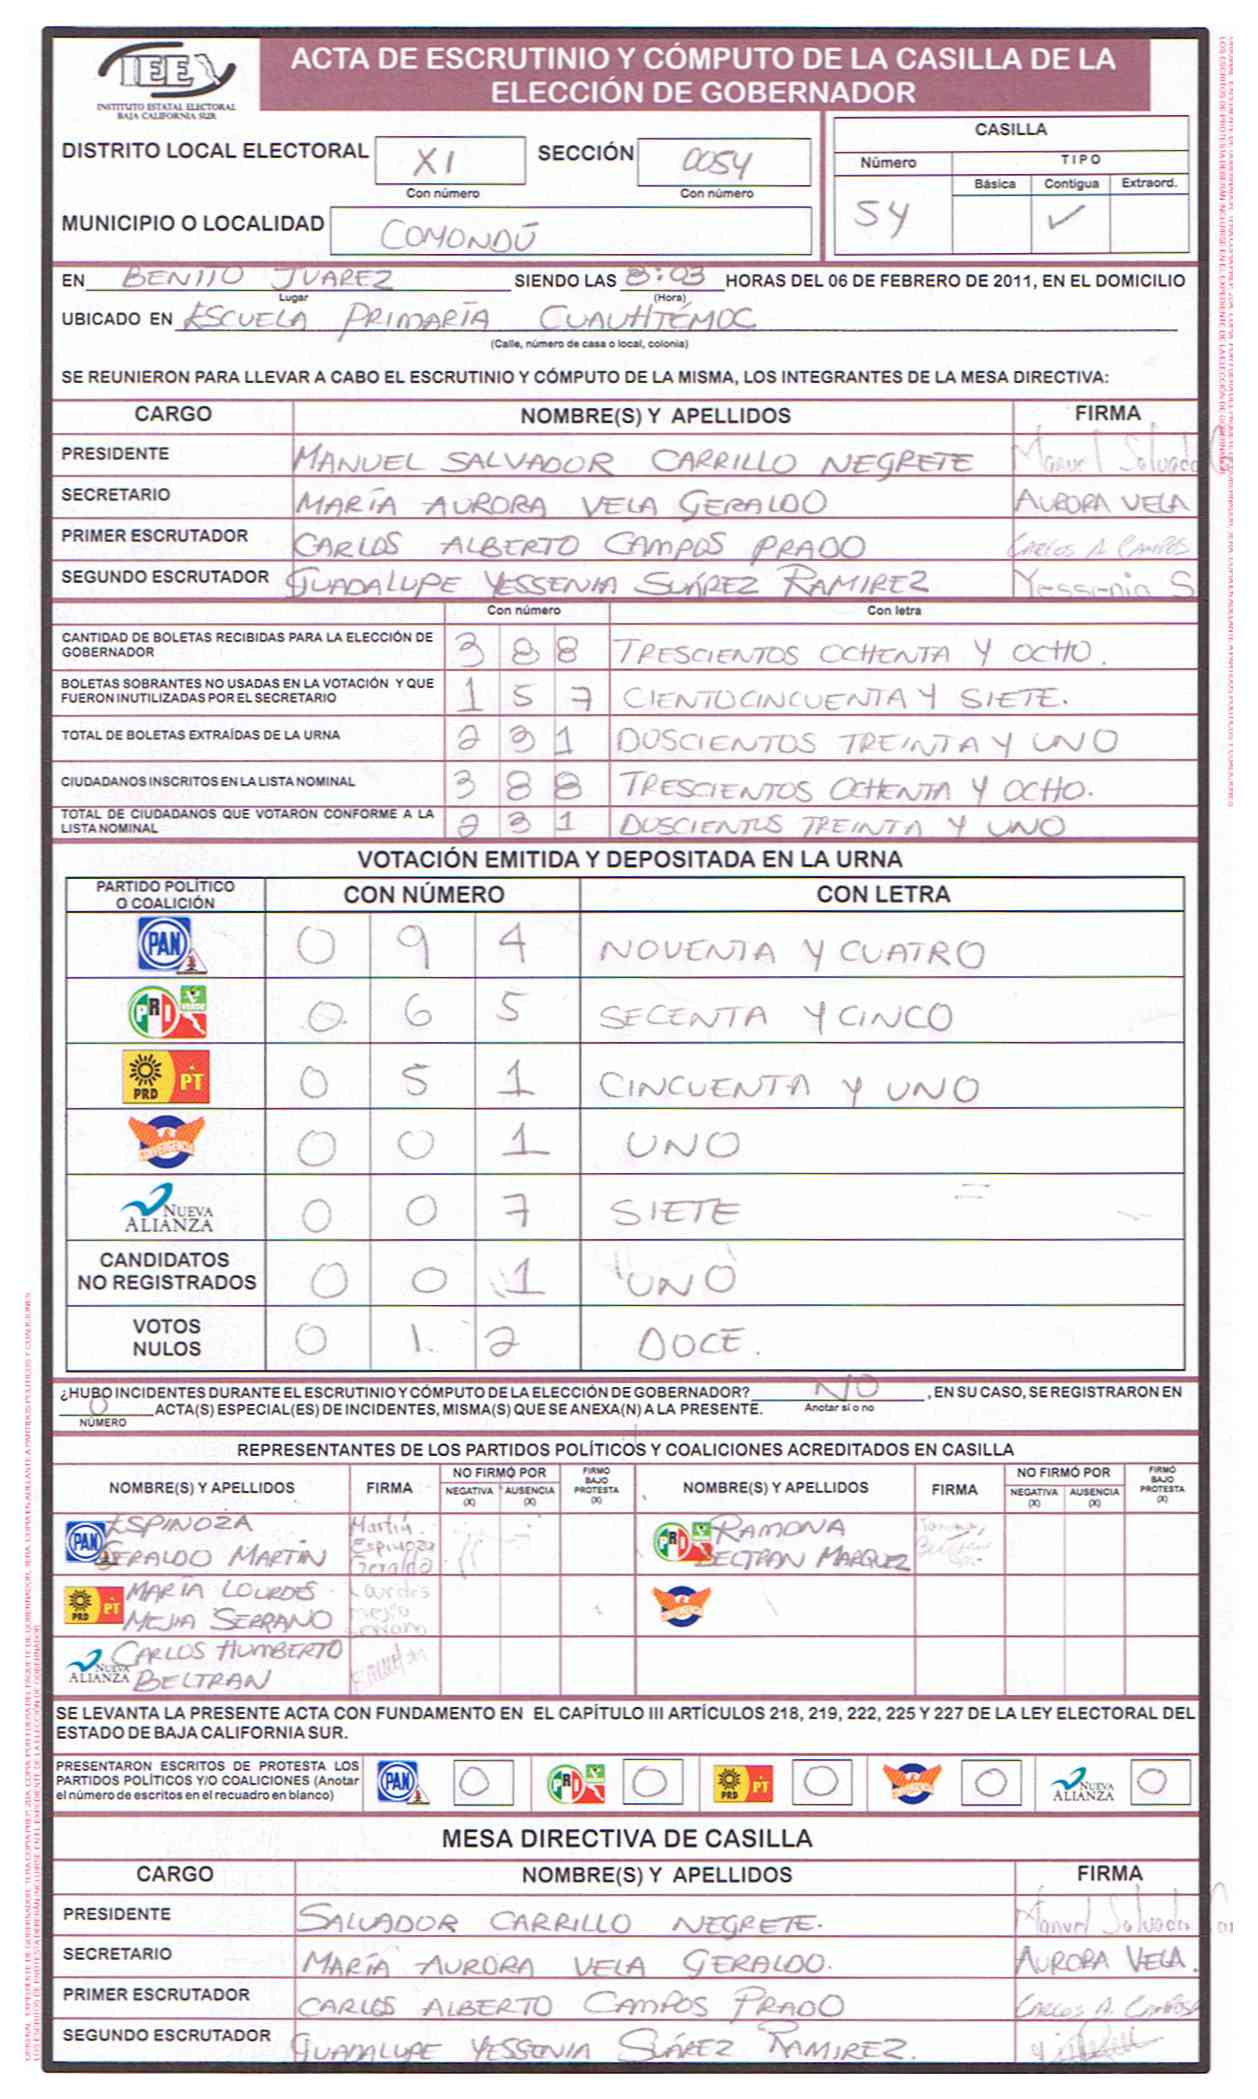 IEE
INSTITUTO ESTATAL ELECTORAL
BAJA CALIFORNIA SUR
ACTA DE ESCRUTINIO Y CÓMPUTO DE LA CASILLA DE LA
ELECCIÓN DE GOBERNADOR
DISTRITO LOCAL ELECTORAL XI SECCIÓN 0054
Con número Con número
MUNICIPIO O LOCALIDAD COMONDÚ
CASILLA
Número TIPO
Básica Contigua Extraord.
54 ✓
EN BENITO JUAREZ SIENDO LAS 8:03 HORAS DEL 06 DE FEBRERO DE 2011, EN EL DOMICILIO
Lugar (Hora)
UBICADO EN ESCUELA PRIMARÍA CUAUHTÉMOC
(Calle, número de casa o local, colonia)
SE REUNIERON PARA LLEVAR A CABO EL ESCRUTINIO Y CÓMPUTO DE LA MISMA, LOS INTEGRANTES DE LA MESA DIRECTIVA:
CARGO NOMBRE(S) Y APELLIDOS FIRMA
PRESIDENTE MANUEL SALVADOR CARRILLO NEGRETE Manuel Salvado
SECRETARIO MARÍA AURORA VELA GERALDO AURORA VELA
PRIMER ESCRUTADOR CARLOS ALBERTO CAMPOS PRADO CARLOS A. CAMPOS
SEGUNDO ESCRUTADOR GUADALUPE YESSENIA SUÁREZ RAMIREZ Yessenia S
Con número Con letra
CANTIDAD DE BOLETAS RECIBIDAS PARA LA ELECCIÓN DE
GOBERNADOR 3 8 8 TRESCIENTOS OCHENTA Y OCHO.
BOLETAS SOBRANTES NO USADAS EN LA VOTACIÓN Y QUE
FUERON INUTILIZADAS POR EL SECRETARIO 1 5 7 CIENTOCINCUENTA Y SIETE.
TOTAL DE BOLETAS EXTRAÍDAS DE LA URNA 2 3 1 DUSCIENTOS TREINTA Y UNO
CIUDADANOS INSCRITOS EN LA LISTA NOMINAL 3 8 8 TRESCIENTOS OCHENTA Y OCHO.
TOTAL DE CIUDADANOS QUE VOTARON CONFORME A LA
LISTA NOMINAL 2 3 1 DUSCIENTUS TREINTA Y UNO
VOTACIÓN EMITIDA Y DEPOSITADA EN LA URNA
PARTIDO POLÍTICO
O COALICIÓN CON NÚMERO CON LETRA
PAN 0 9 4 NOVENTA Y CUATRO
PRI VERDE 0 6 5 SECENTA Y CINCO
PRD PT 0 5 1 CINCUENTA Y UNO
CONVERGENCIA 0 0 1 UNO
NUEVA ALIANZA 0 0 7 SIETE
CANDIDATOS
NO REGISTRADOS 0 0 1 UNO
VOTOS
NULOS 0 1 2 DOCE.
¿HUBO INCIDENTES DURANTE EL ESCRUTINIO Y CÓMPUTO DE LA ELECCIÓN DE GOBERNADOR? NO , EN SU CASO, SE REGISTRARON EN
0 ACTA(S) ESPECIAL(ES) DE INCIDENTES, MISMA(S) QUE SE ANEXA(N) A LA PRESENTE. Anotar sí o no
NÚMERO
REPRESENTANTES DE LOS PARTIDOS POLÍTICOS Y COALICIONES ACREDITADOS EN CASILLA
NOMBRE(S) Y APELLIDOS FIRMA NO FIRMÓ POR NEGATIVA (X) AUSENCIA (X) FIRMÓ BAJO PROTESTA (X) NOMBRE(S) Y APELLIDOS FIRMA NO FIRMÓ POR NEGATIVA (X) AUSENCIA (X) FIRMÓ BAJO PROTESTA (X)
PAN ESPINOZA Martín PRI RAMONA
GERALDO MARTÍN Espinoza Geraldo BELTRAN MARQUEZ
PRD PT MARÍA LOURDES Lourdes
MEJIA SERRANO Mejía Serrano
NUEVA ALIANZA CARLOS HUMBERTO
BELTRAN
SE LEVANTA LA PRESENTE ACTA CON FUNDAMENTO EN EL CAPÍTULO III ARTÍCULOS 218, 219, 222, 225 Y 227 DE LA LEY ELECTORAL DEL
ESTADO DE BAJA CALIFORNIA SUR.
PRESENTARON ESCRITOS DE PROTESTA LOS
PARTIDOS POLÍTICOS Y/O COALICIONES (Anotar
el número de escritos en el recuadro en blanco)
PAN 0 PRI 0 PRD PT 0 CONVERGENCIA 0 NUEVA ALIANZA 0
MESA DIRECTIVA DE CASILLA
CARGO NOMBRE(S) Y APELLIDOS FIRMA
PRESIDENTE SALVADOR CARRILLO NEGRETE. Manuel Salvado
SECRETARIO MARÍA AURORA VELA GERALDO. AURORA VELA.
PRIMER ESCRUTADOR CARLOS ALBERTO CAMPOS PRADO CARLOS A. CAMPOS
SEGUNDO ESCRUTADOR GUADALUPE YESSENIA SUÁREZ RAMIREZ.